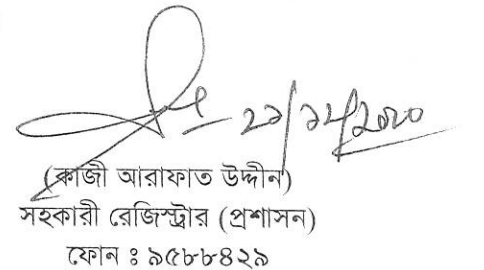 ২১/১২/২০২০
(কাজী আরাফাত উদ্দীন)
সহকারী রেজিস্ট্রার (প্রশাসন)
ফোন ঃ ৯৫৮৮৪২৯